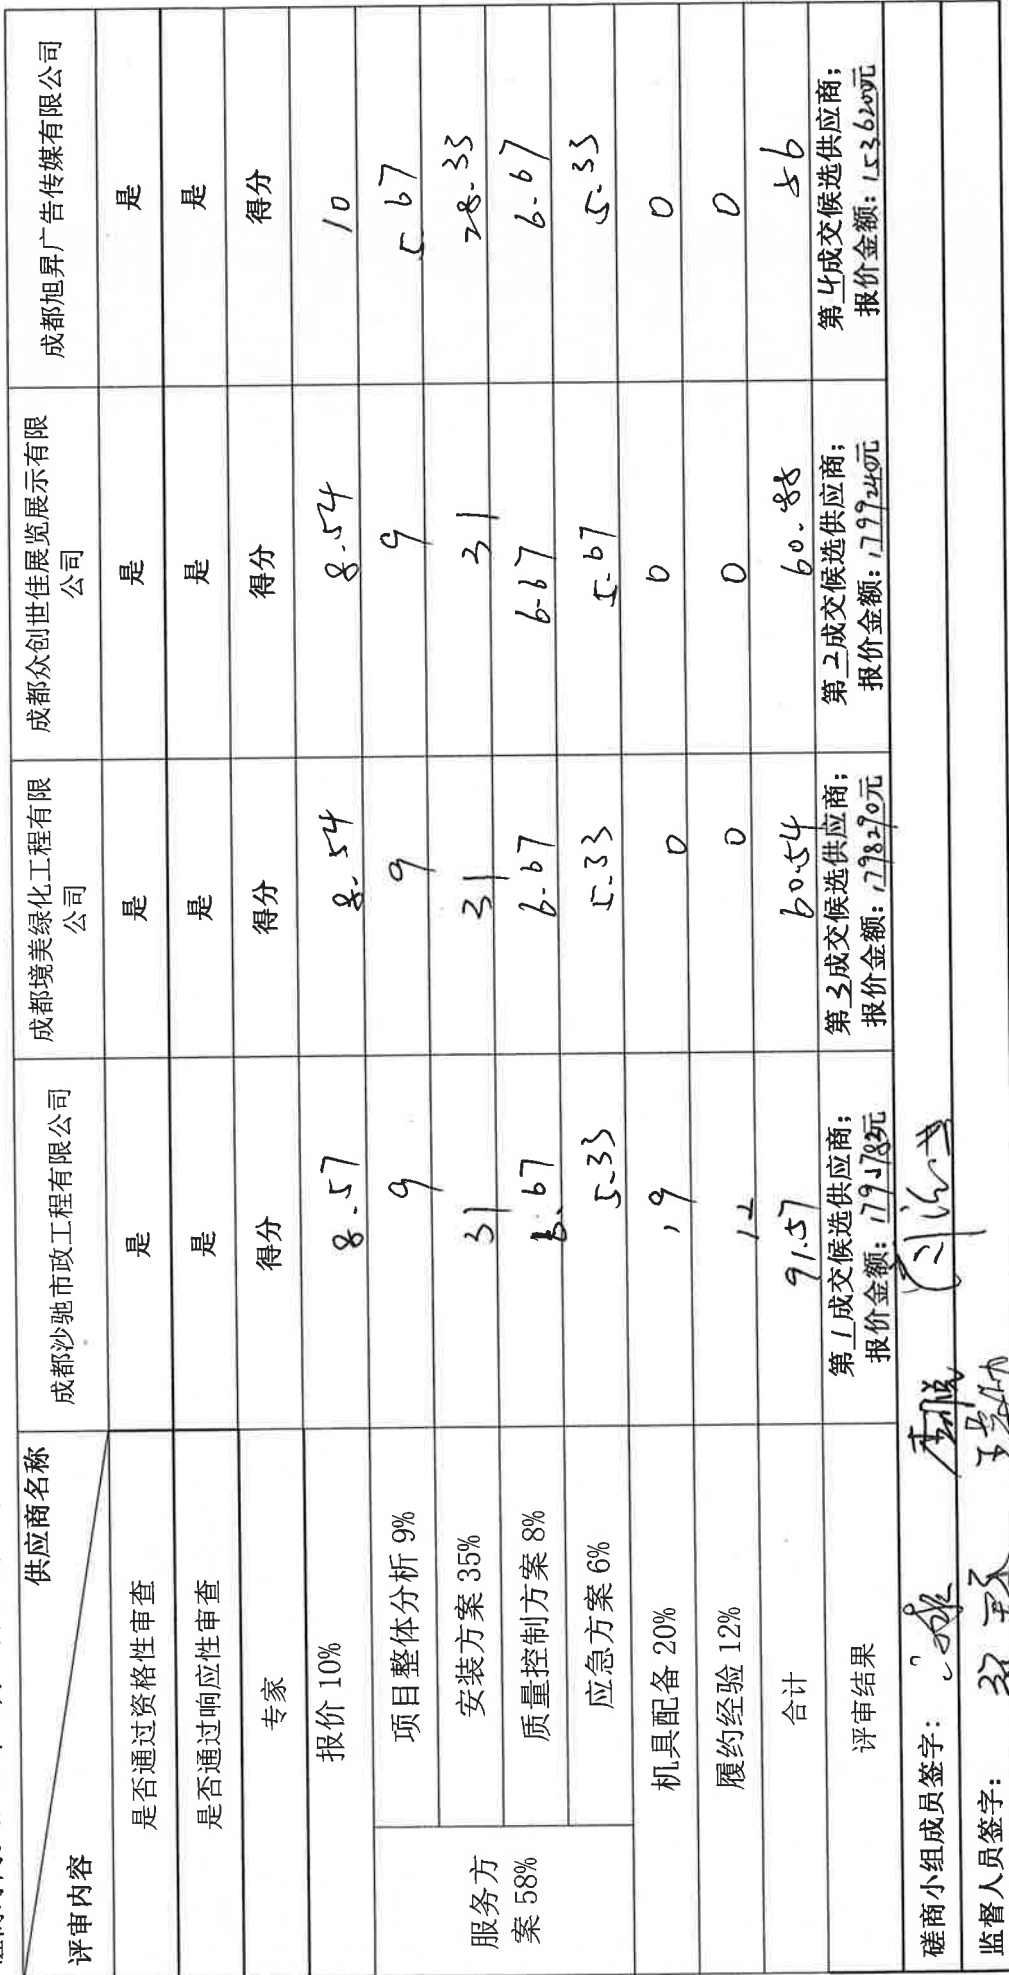 供应商名称
评审内容
成都沙驰市政工程有限公司
成都境美绿化工程有限
公司
成都众创世佳展览展示有限
公司
成都旭昇广告传媒有限公司
是否通过资格性审查 是 是 是 是
是否通过响应性审查 是 是 是 是
专家 得分 得分 得分 得分
报价 10% 8.57 8.54 8.54 10
服务方
案 58%
项目整体分析 9% 9 9 9 5.67
安装方案 35% 31 31 31 28.33
质量控制方案 8% 6.67 6.67 6.67 6.67
应急方案 6% 5.33 5.33 5.67 5.33
机具配备 20% 19 0 0 0
履约经验 12% 12 0 0 0
合计 91.57 60.54 60.88 56
评审结果
第1成交候选供应商;
报价金额: 元
第3成交候选供应商;
报价金额:1798290元
第2成交候选供应商;
报价金额:1799240元
第4成交候选供应商;
报价金额:1536200元
磋商小组成员签字:
监督人员签字: